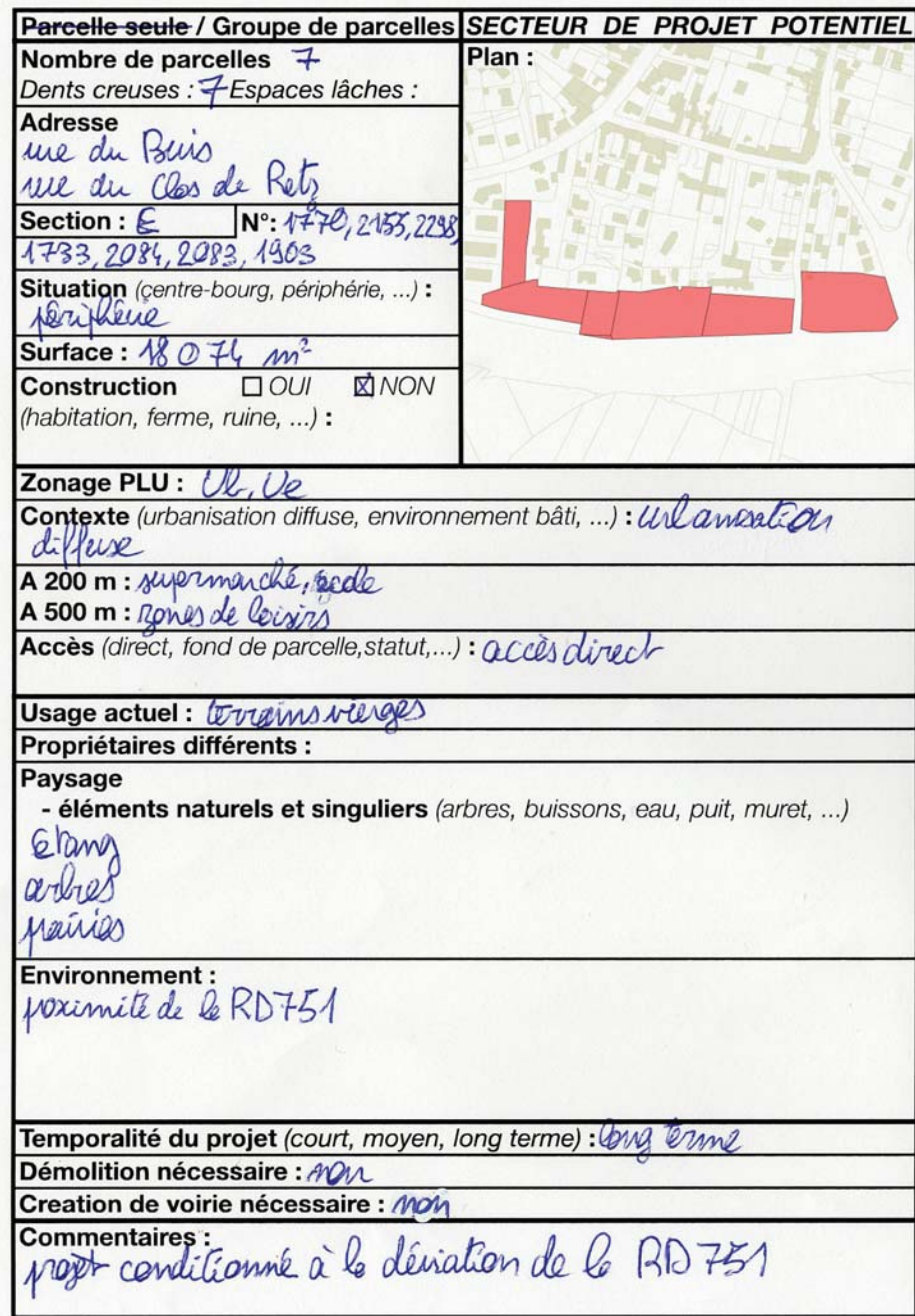 Parcelle seule / Groupe de parcelles
SECTEUR DE PROJET POTENTIEL
Nombre de parcelles 7
Dents creuses : 7 Espaces lâches :
Adresse
rue du Buis
rue du Clos de Retz
Section : E N°: 1770, 2155, 2298,
1733, 2084, 2083, 1903
Situation (centre-bourg, périphérie, ...) :
périphérie
Surface : 18 074 m²
Construction ☐ OUI ☒ NON
(habitation, ferme, ruine, ...) :
Plan :
Zonage PLU : Ub, Ue
Contexte (urbanisation diffuse, environnement bâti, ...) : urbanisation
diffuse
A 200 m : supermarché, école
A 500 m : zones de loisirs
Accès (direct, fond de parcelle,statut,...) : accès direct
Usage actuel : terrains vierges
Propriétaires différents :
Paysage
- éléments naturels et singuliers (arbres, buissons, eau, puit, muret, ...)
étang
arbres
prairies
Environnement :
proximité de la RD751
Temporalité du projet (court, moyen, long terme) : long terme
Démolition nécessaire : non
Creation de voirie nécessaire : non
Commentaires :
projet conditionné à la déviation de la RD 751